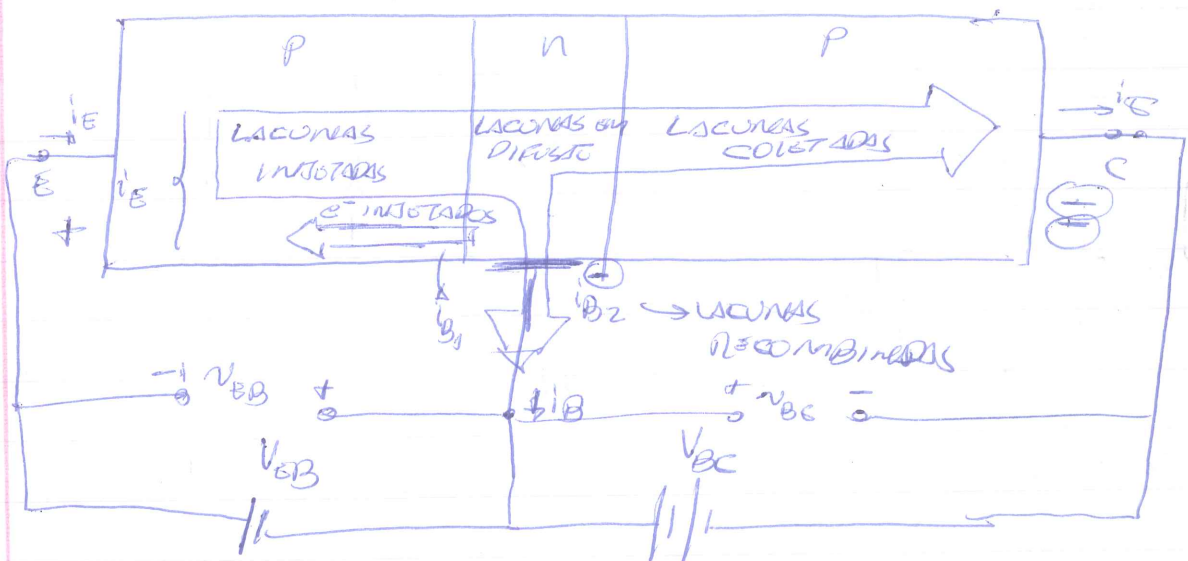 P n P
i_E
i_E
LACUNAS INJETADAS
LACUNAS EM DIFUSÃO
LACUNAS COLETADAS
i_C
E
C
+
e⁻ INJETADOS
i_B1
i_B2 → LACUNAS RECOMBINADAS
- v_EB +
i_B
+ v_BC -
V_EB
V_BC